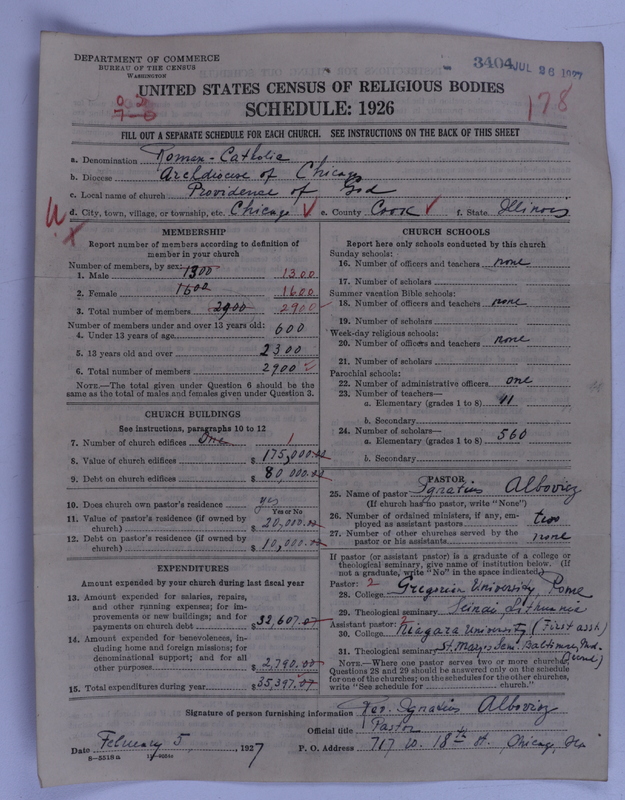 DEPARTMENT OF COMMERCE
BUREAU OF THE CENSUS
WASHINGTON
3404 JUL 26 1927
UNITED STATES CENSUS OF RELIGIOUS BODIES
SCHEDULE: 1926
178
FILL OUT A SEPARATE SCHEDULE FOR EACH CHURCH. SEE INSTRUCTIONS ON THE BACK OF THIS SHEET
a. Denomination Roman-Catholic
b. Diocese Archdiocese of Chicago
c. Local name of church Providence of God
d. City, town, village, or township, etc. Chicago e. County Cook f. State Illinois
MEMBERSHIP
Report number of members according to definition of
member in your church
Number of members, by sex:
1. Male 1300 1300
2. Female 1600 1600
3. Total number of members 2900 2900
Number of members under and over 13 years old:
4. Under 13 years of age 600
5. 13 years old and over 2300
6. Total number of members 2900
NOTE.—The total given under Question 6 should be
same as the total of males and females given under Question 3.
CHURCH BUILDINGS
See instructions, paragraphs 10 to 12
7. Number of church edifices One 1
8. Value of church edifices $ 175,000.00
9. Debt on church edifices $ 80 000.00
10. Does church own pastor's residence yes
Yes or No
11. Value of pastor's residence (if owned by
church) $ 20,000.00
12. Debt on pastor's residence (if owned by
church) $ 10,000.00
EXPENDITURES
Amount expended by your church during last fiscal year
13. Amount expended for salaries, repairs,
and other running expenses; for im-
provements or new buildings; and for
payments on church debt $ 32,607.07
14. Amount expended for benevolences, in-
cluding home and foreign missions; for
denominational support; and for all
other purposes $ 2,790.00
15. Total expenditures during year $ 35,397.07
CHURCH SCHOOLS
Report here only schools conducted by this church
Sunday schools:
16. Number of officers and teachers none
17. Number of scholars
Summer vacation Bible schools:
18. Number of officers and teachers none
19. Number of scholars
Week-day religious schools:
20. Number of officers and teachers none
21. Number of scholars
Parochial schools:
22. Number of administrative officers one
23. Number of teachers—
a. Elementary (grades 1 to 8) 11
b. Secondary
24. Number of scholars—
a. Elementary (grades 1 to 8) 560
b. Secondary
PASTOR
25. Name of pastor Ignatius Albovicz
(If church has no pastor, write "None")
26. Number of ordained ministers, if any, em-
ployed as assistant pastors two
27. Number of other churches served by the
pastor or his assistants none
If pastor (or assistant pastor) is a graduate of a college or
theological seminary, give name of institution below. (If
not a graduate, write "No" in the space indicated)
Pastor: 2
28. College Gregorian University, Rome
29. Theological seminary Seinai, Lithuania
Assistant pastor: 2
30. College Niagara University (First asst.)
31. Theological seminary St. Mary's Sem. Baltimore, Md.
NOTE.—Where one pastor serves two or more churches,
Questions 28 and 29 should be answered only on the schedule
for one of the churches; on the schedules for the other churches,
write "See schedule for church."
Signature of person furnishing information Rev. Ignatius Albovicz
Official title Pastor
Date February 5, 1927 P. O. Address 717 W. 18th St. Chicago, Ill
8-5518a